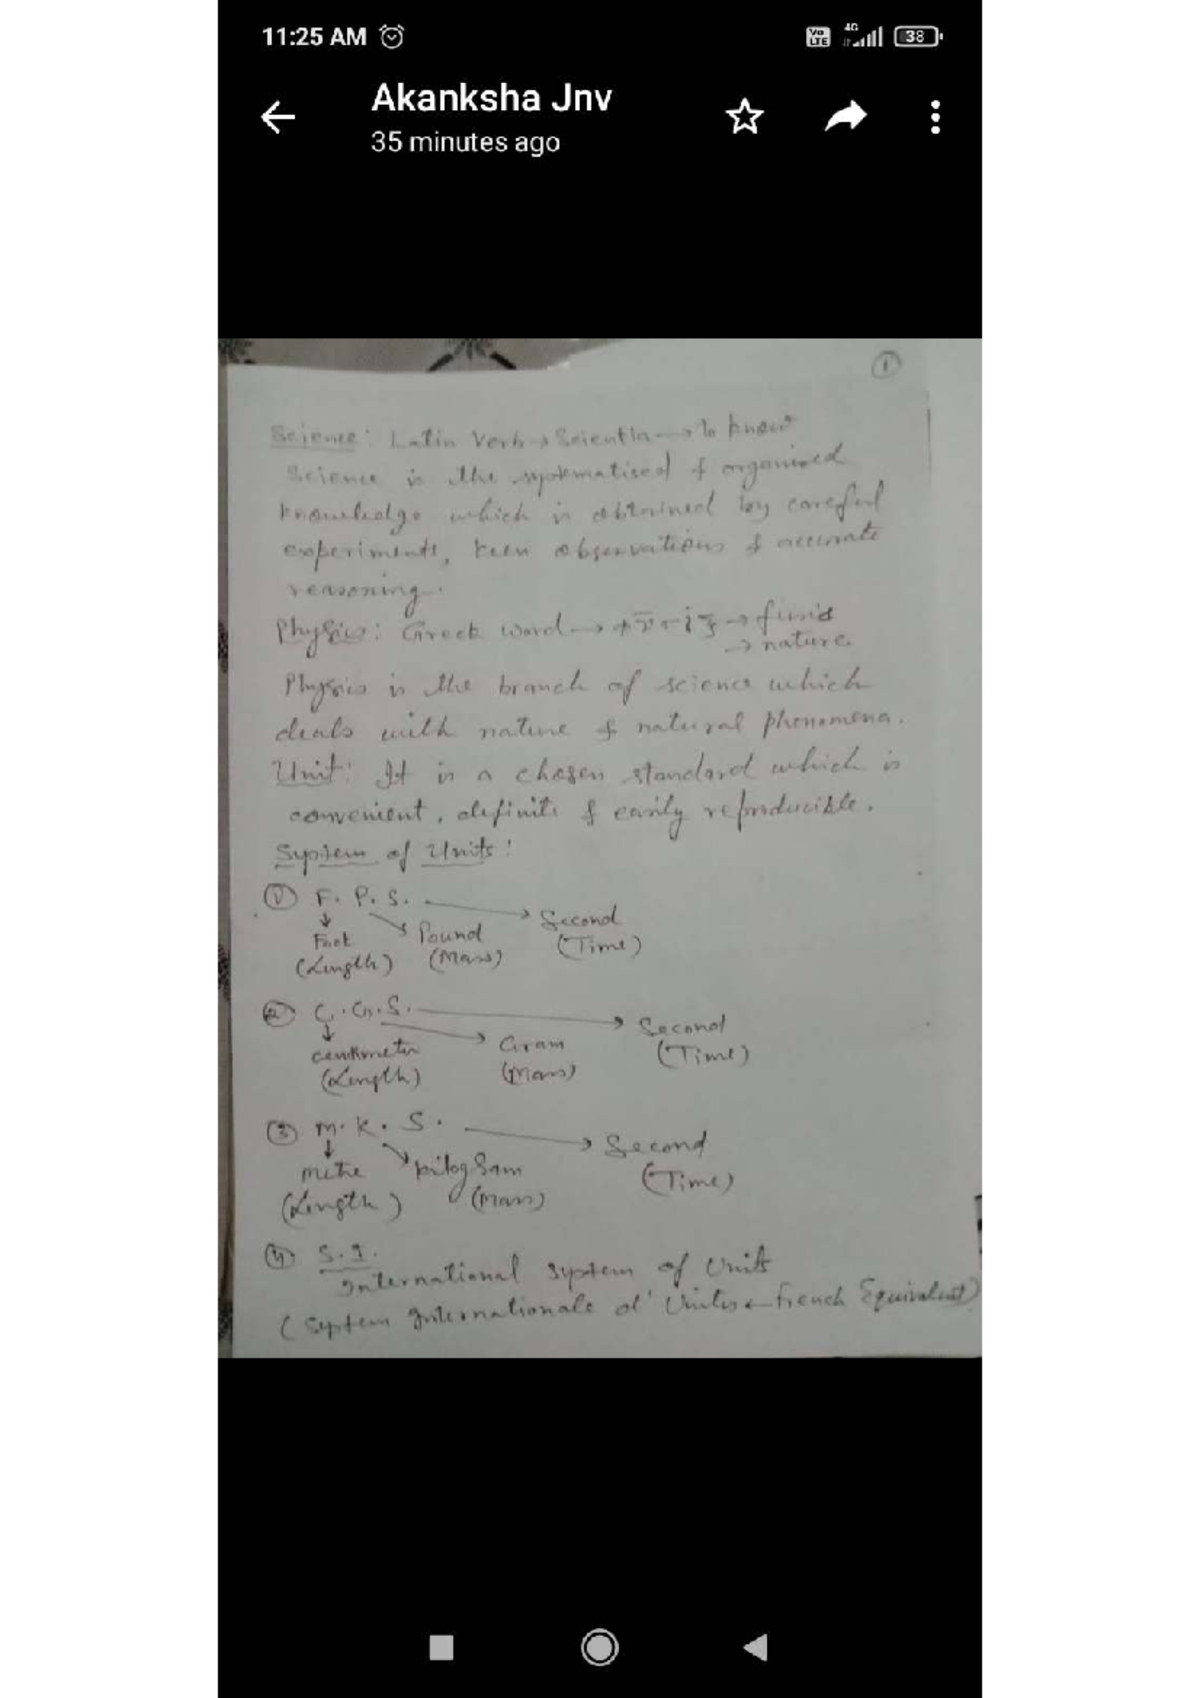 11:25 AM
Vo LTE 4G 38
Akanksha Jnv
35 minutes ago
1
Science: Latin Verb → Scientia → to know
Science is the systematised & organised
knowledge which is obtained by careful
experiments, keen observations & accurate
reasoning.
Physics: Greek word → → fusis
→ nature
Physics is the branch of science which
deals with nature & natural phenomena.
Unit: It is a chosen standard which is
convenient, definite & easily reproducible.
System of Units:
① F. P. S. → Second
Foot Pound (Time)
(Length) (Mass)
② C. G. S. → Second
centimeter Gram (Time)
(Length) (Mass)
③ M. K. S. → Second
metre kilogram (Time)
(Length) (Mass)
④ S.I.
International system of Units
(System Internationale d' Unites ← French Equivalent)